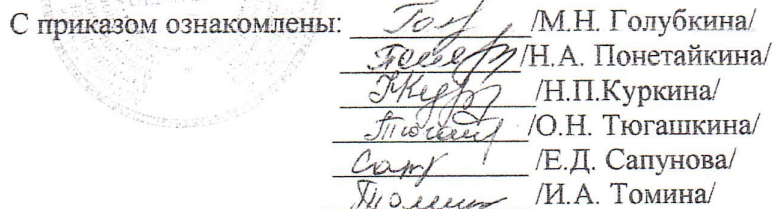 С приказом ознакомлены: /М.Н. Голубкина/
/Н.А. Понетайкина/
/Н.П.Куркина/
/О.Н. Тюгашкина/
/Е.Д. Сапунова/
/И.А. Томина/